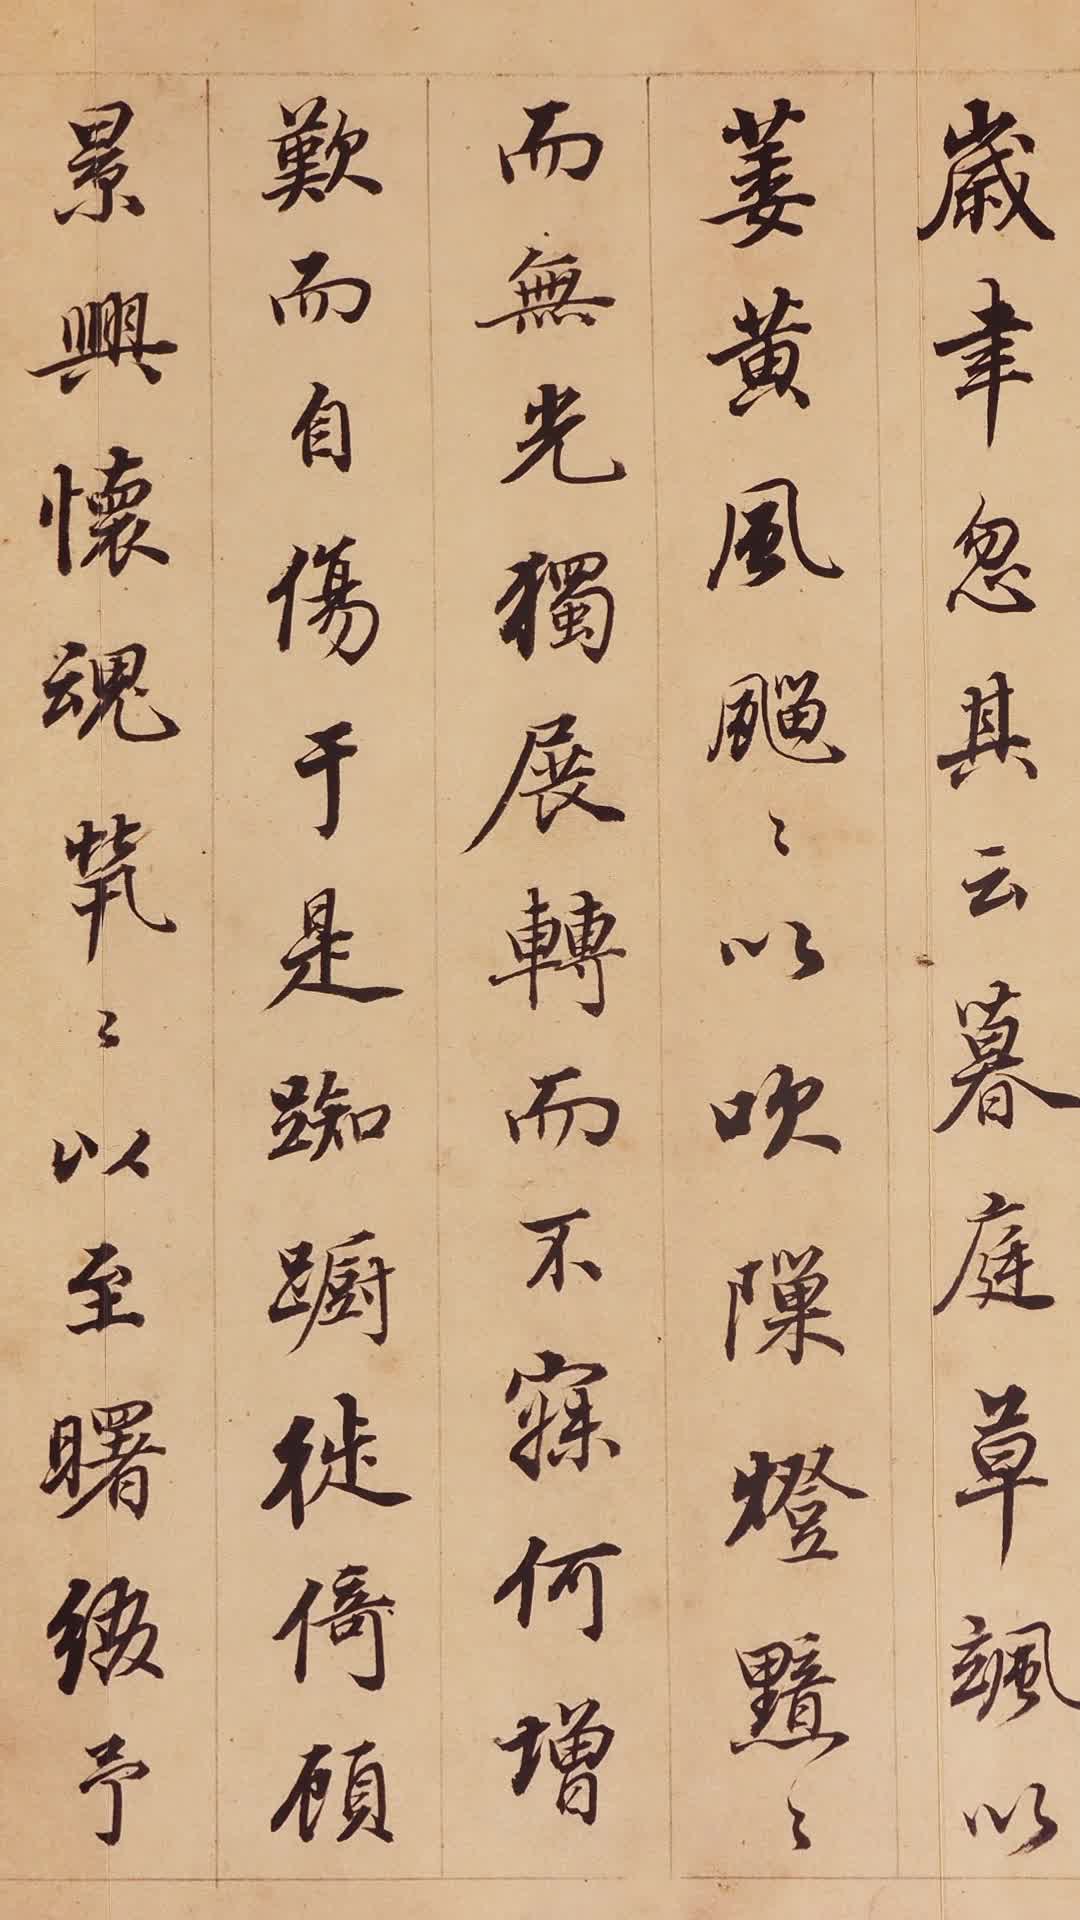 歲聿忽其云暮庭草颯以
萎黃風飀〻以吹隙燈黯〻
而無光獨展轉而不寐何增
歎而自傷于是踟躕徙倚顧
景興懷魂煢〻以至曙綴予